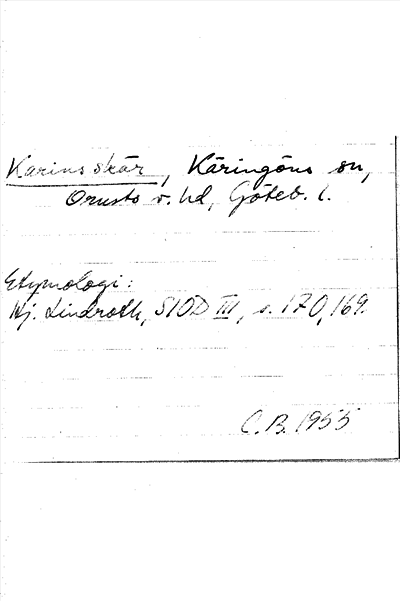 Karins skär, Käringöns sn,
Orusts v. hd, Göteb. l.
Etymologi:
Hj. Lindroth, SIOD III, s. 170, 169.
C.B. 1955